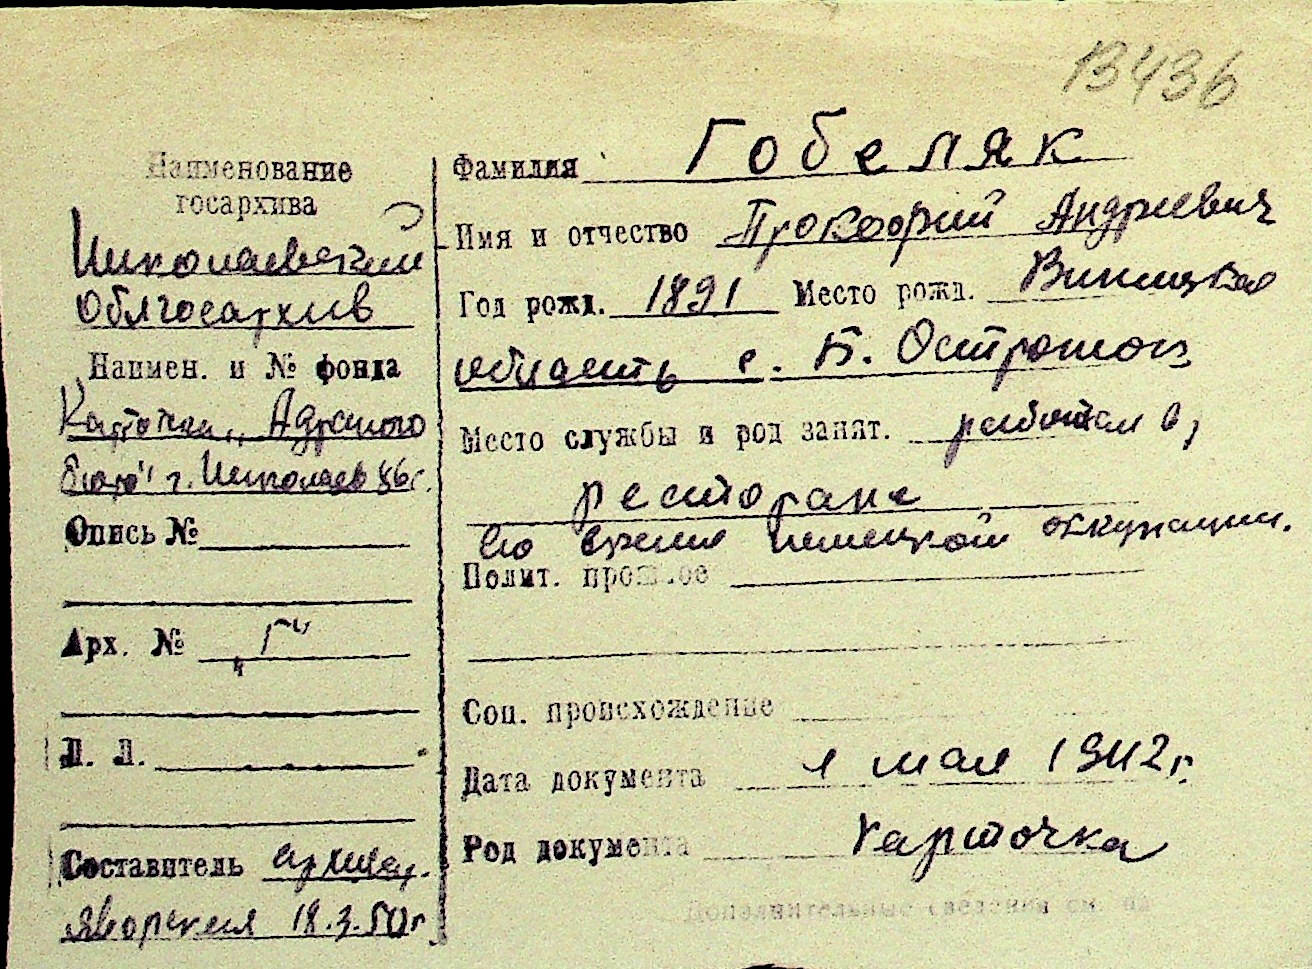 13436
Наименование
госархива
Николаевский
Облгосархив
Наимен. и № фонда
Карточки „Адресного
бюро" г. Николаев
Опись №
Арх. № „Г"
Л. Л.
Составитель архивар.
Яворская 18.3.50г
Фамилия Гобеляк
Имя и отчество Прокофий Андреевич
Год рожд. 1891 Место рожд. Виницкая
область с. Б. Острожок
Место службы и род занят. работал в
ресторане
во время немецкой оккупации.
Полит. прошлое
Соц. происхождение
Дата документа 1 мая 1942г.
Род документа карточка
Дополнительные сведения см. на